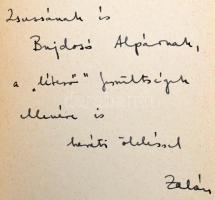 Zsuzsának és
Bujdosó Alpárnak,
a „létező” feszültségek
ellenére is
baráti öleléssel
Zalán